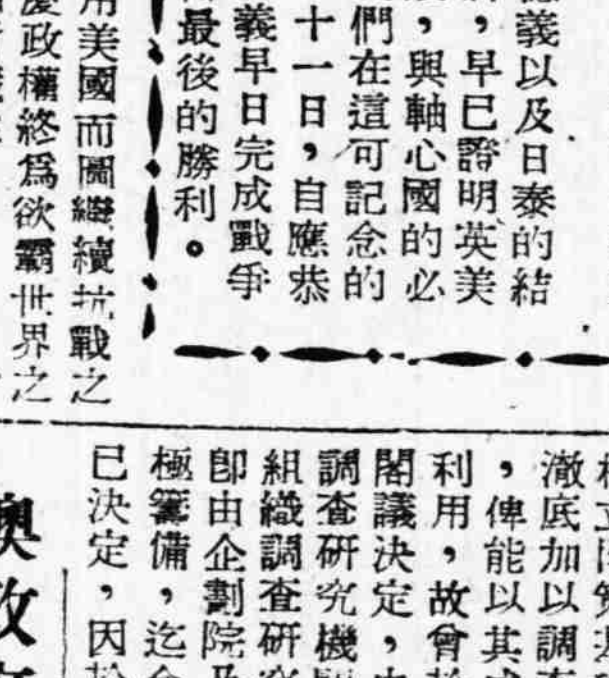 義以及日泰的結
，早已證明英美
，與軸心國的必
們在這可記念的
十一日，自應恭
義早日完成戰爭
最後的勝利。
用美國而圖繼續抗戰之
政權終爲欲霸世界之
澈底加以調
，俾能以其
利用，故曾
閣議決定，
調查研究機
組織調查研
卽由企劃院
極籌備，迄
已決定，因